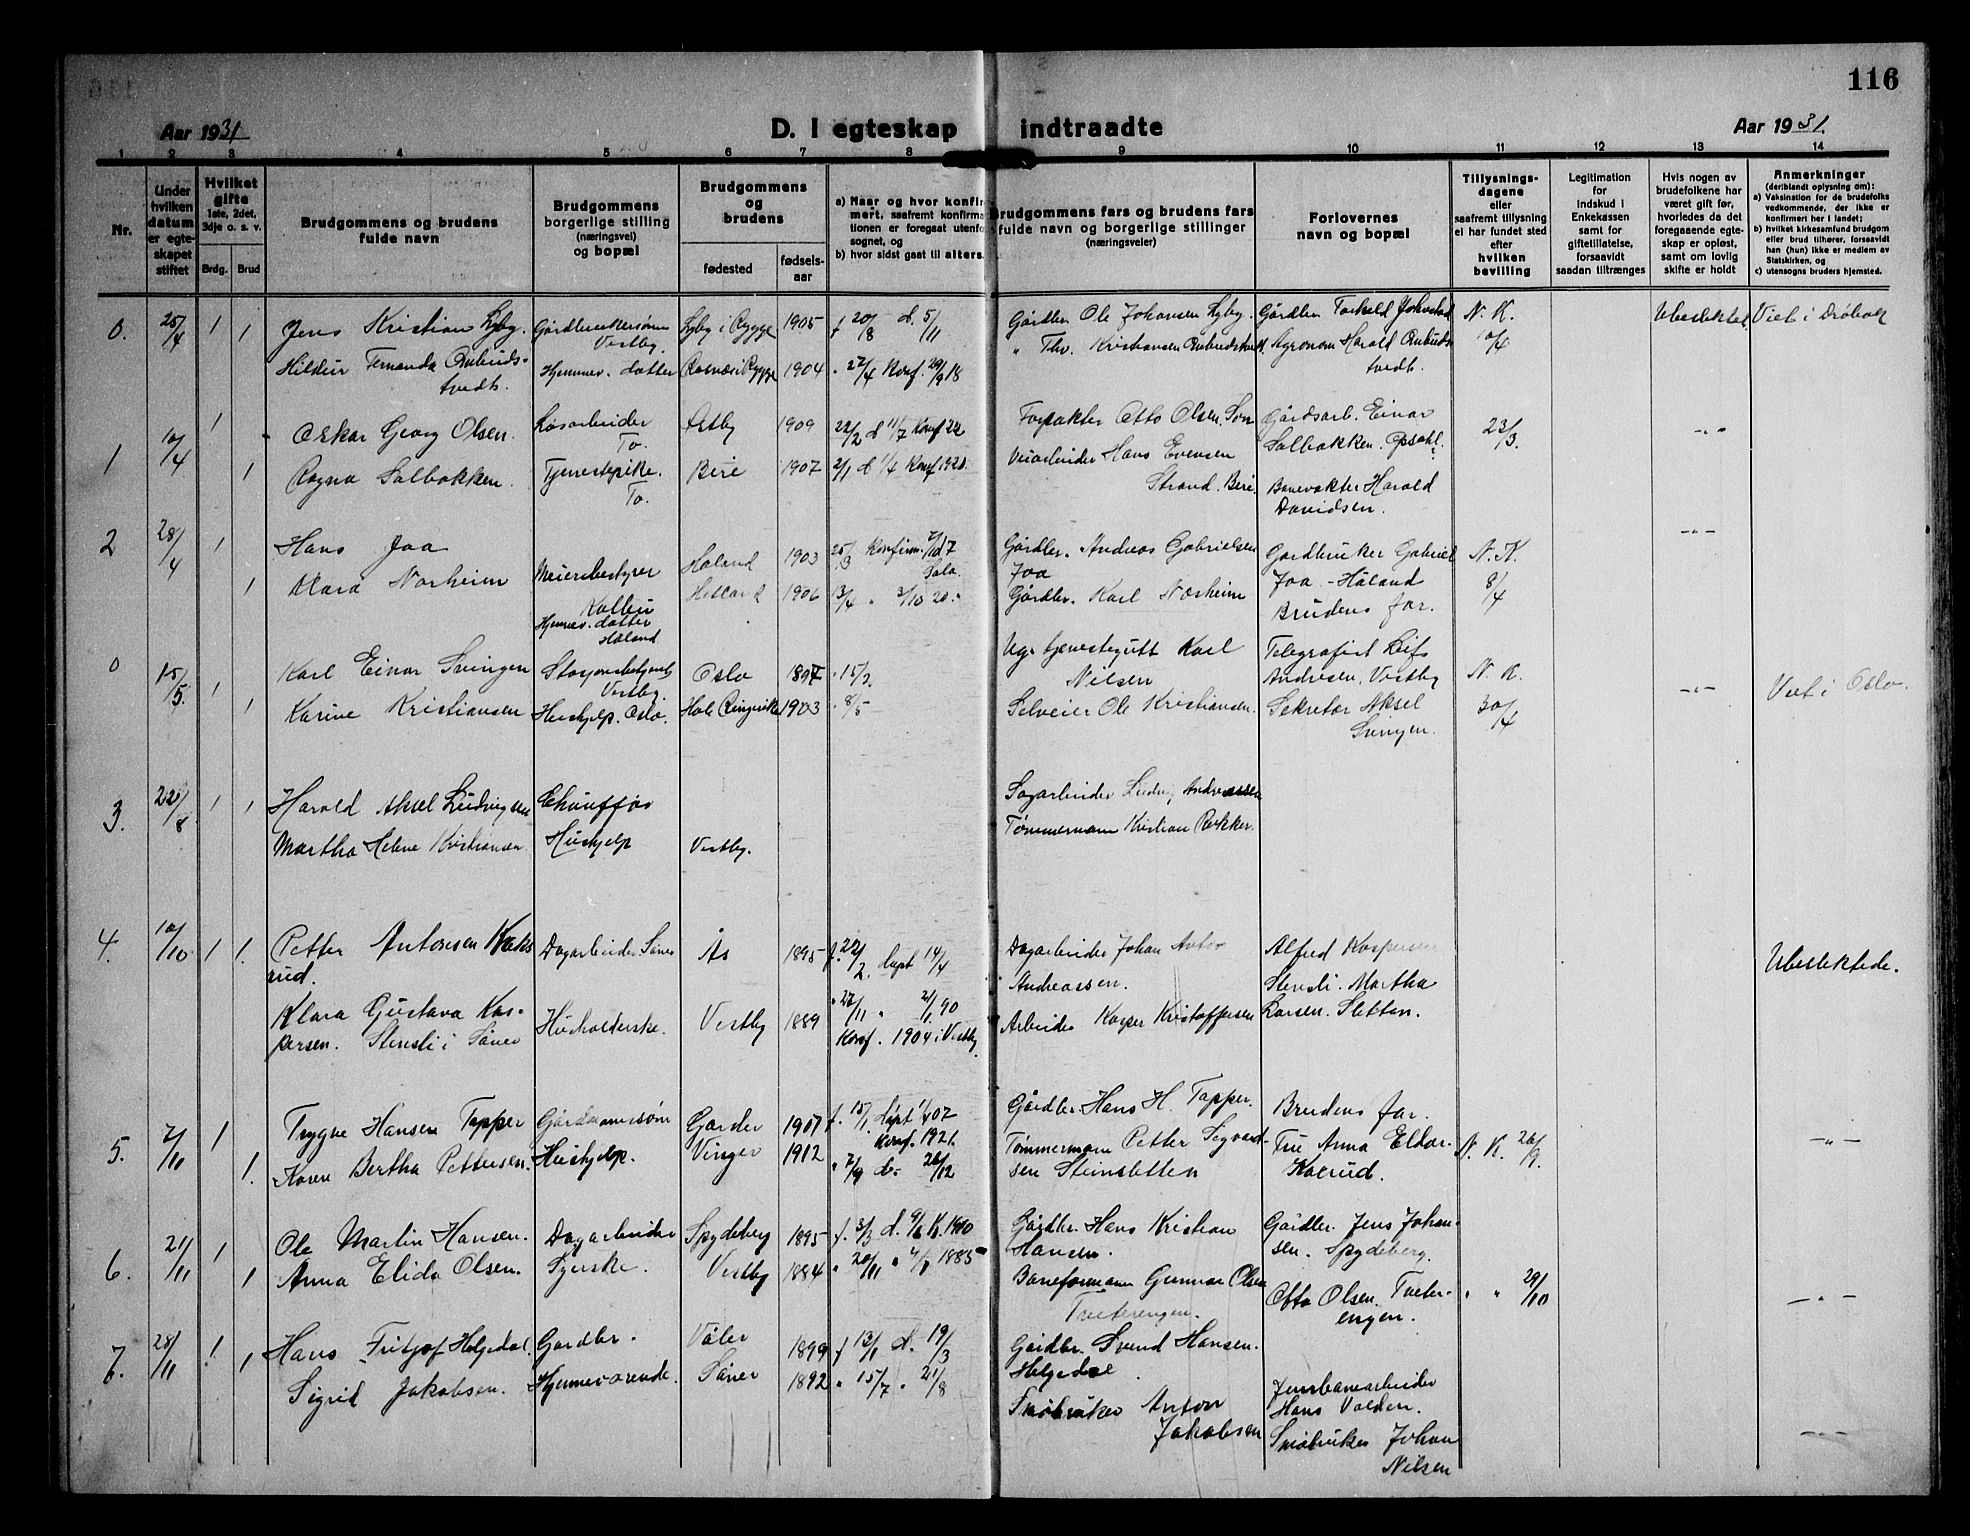 116
Aar 1931
D. I egteskap indtraadte
Aar 1931.
1 2 3 4 5 6 7 8 9 10 11 12 13 14
Nr.
Under
hvilken
datum
er egte-
skapet
stiftet
Hvilket
gifte
1ste, 2det,
3dje o. s. v.
Brdg. Brud
Brudgommens og brudens
fulde navn
Brudgommens
borgerlige stilling
(næringsvei)
og bopæl
Brudgommens
og
brudens
fødested
fødsels-
aar
a) Naar og hvor konfir
mert, saafremt konfirma
tionen er foregaat utenfo
sognet, og
b) hvor sidst gaat til alters.
Brudgommens fars og brudens fars
fulde navn og borgerlige stillinger
(næringsveier)
Forlovernes
navn og bopæl
Tillysnings-
dagene
eller
saafremt tillysning
ei har fundet sted
efter
hvilken
bevilling
Legitimation
for
indskud i
Enkekassen
samt for
giftetillatelse,
forsaavidt
saadan tiltrænges
Hvis nogen av
brudefolkene har
været gift før,
hvorledes da det
foregaaende egte-
skap er opløst,
samt om lovlig
skifte er holdt
Anmerkninger
(deriblandt oplysning om):
a) Vaksination for de brudefolks
vedkommende, der ikke er
konfirmert her i landet;
b) hvilket kirkesamfund brudgom
eller brud tilhører, forsaavidt
han (hun) ikke er medlem av
Statskirken, og
c) utensogns bruders hjemsted.
0. 25/4 1 1 Jens Kristian Lyby. Gårdbrukersønn Vestby. Lyby i Rygge 1905 f 20/8 d. 5/11 Gårdbr. Ole Johansen Lyby. Gårdbr. Torkeld N. K. 10/4 Ubeslektet Viet i Drøbak
Hildur Fernanda Ombuds-
tvedt. Hjemmev. datter Rygge 1904 " 27/4 Konf. 29/9 18 " Thv. Kristiansen Agronom Harold Ombuds-
tvedt.
1 10/4 1 Oskar Georg Olsen. Løsarbeider To. Østby 1909 22/2 d 11/7 Konf 22 Forpakter Otto Olsen, Son Gårdsarb. Einar
Solbakken. Opsahl. 23/3 - " -
1 Ragna Solbakken. Tjenestepike. To. Biri 1907 2/1 d 1/4 Konf 1920. Veiarbeider Hans Evensen
Strand. Biri. Banevokter Harold
Davidsen.
2 28/4 1 Hans Joa Meieribestyrer Kolbu Håland 1903 25/3 Konfirm. Sola. Gårdbr. Andreas Gabrielsen
Joa Gårdbruker Gabriel
Joa - Håland N. K. 8/4 - " -
1 Klara Norheim Hjemmev. datter Håland Hetland 1906 13/4 " 3/10 20. Gårdbr. Karl Norheim Brudens far.
0 15/5. 1 Karl Einar Svingen Vestby. Oslo 1897 . 15/2. Ugr tjenestegutt Karl
Nilsen Telegrafist Leif
Andresen, Vestby N. K. 30/4 - " - Viet i Oslo.
1 Karine Kristiansen Hushjelp. Oslo. Hole Ringerike 1903 . 8/5 Selveier Ole Kristiansen. Sekretær Aksel
Svingen.
3. 22/8 1 1 Harold Aksel Ludvigsen Chauffør Sagarbeider Ludvig Andreassen
Martha Helene Kristiansen Hushjelp Vestby. Tømmermann Kristian
4. 10/10 1 1. Petter Antonsen
rud. Dagarbeider Såner Ås 1895 f. 22/2. døpt 14/4 Dagarbeider Johan Anton
Andreassen. Alfred Kaspersen
Stensli. Martha
Larsen. Sletten. Ubeslektede.
Klara Gustava Kas-
persen. Stensli i Såner Husholderske. Vestby 1889 " 27/11 " 21/1 90
Konf. 1904 i Vestby. Arbeider Kasper Kristoffersen
5. 7/11 1 Trygve Hansen Topper Gårdmannssønn Garder 1907 f. 15/1. døpt 1/4 07
Konf. 1921. Gårdbr. Hans H. Topper. Brudens far. N. K. 26/9. - " -
1. Karen Bertha Pettersen. Hushjelp. Vinger 1912 " 7/9 d- 26/12 Tømmermann Petter Sigvard-
sen Steinsletten Fru Anna Eldor-
Kolrud.
6. 21/11 1 Ole Martin Hansen. Dagarbeider Spydeberg 1895 f. 3/3 d. 9/6 K. 1910 Gårdbr. Hans Kristian
Hansen. Gårdbr. Jens Johan-
sen. Spydeberg. " " 29/10 - " -
1 Anna Elida Olsen. Syerske. Vestby 1884 " 20/11 " 4/1 1885 Baneformann Gunnar Olsen
Tveterengen. Otto Olsen. Tveter-
engen.
7. 28/11 1 Hans Fritjof Helgedal. Gårdbr. Våler 1899 f 13/1 d. 19/3 Gårdbr. Svend Hansen.
Helgedal. Jernbanearbeider
Hans Volden. - " -
1 Sigrid Jakobsen. Hjemmeværende. Såner 1892 " 15/7 " 21/8 Småbruker Anton
Jakobsen Småbruker Johan
Nilsen